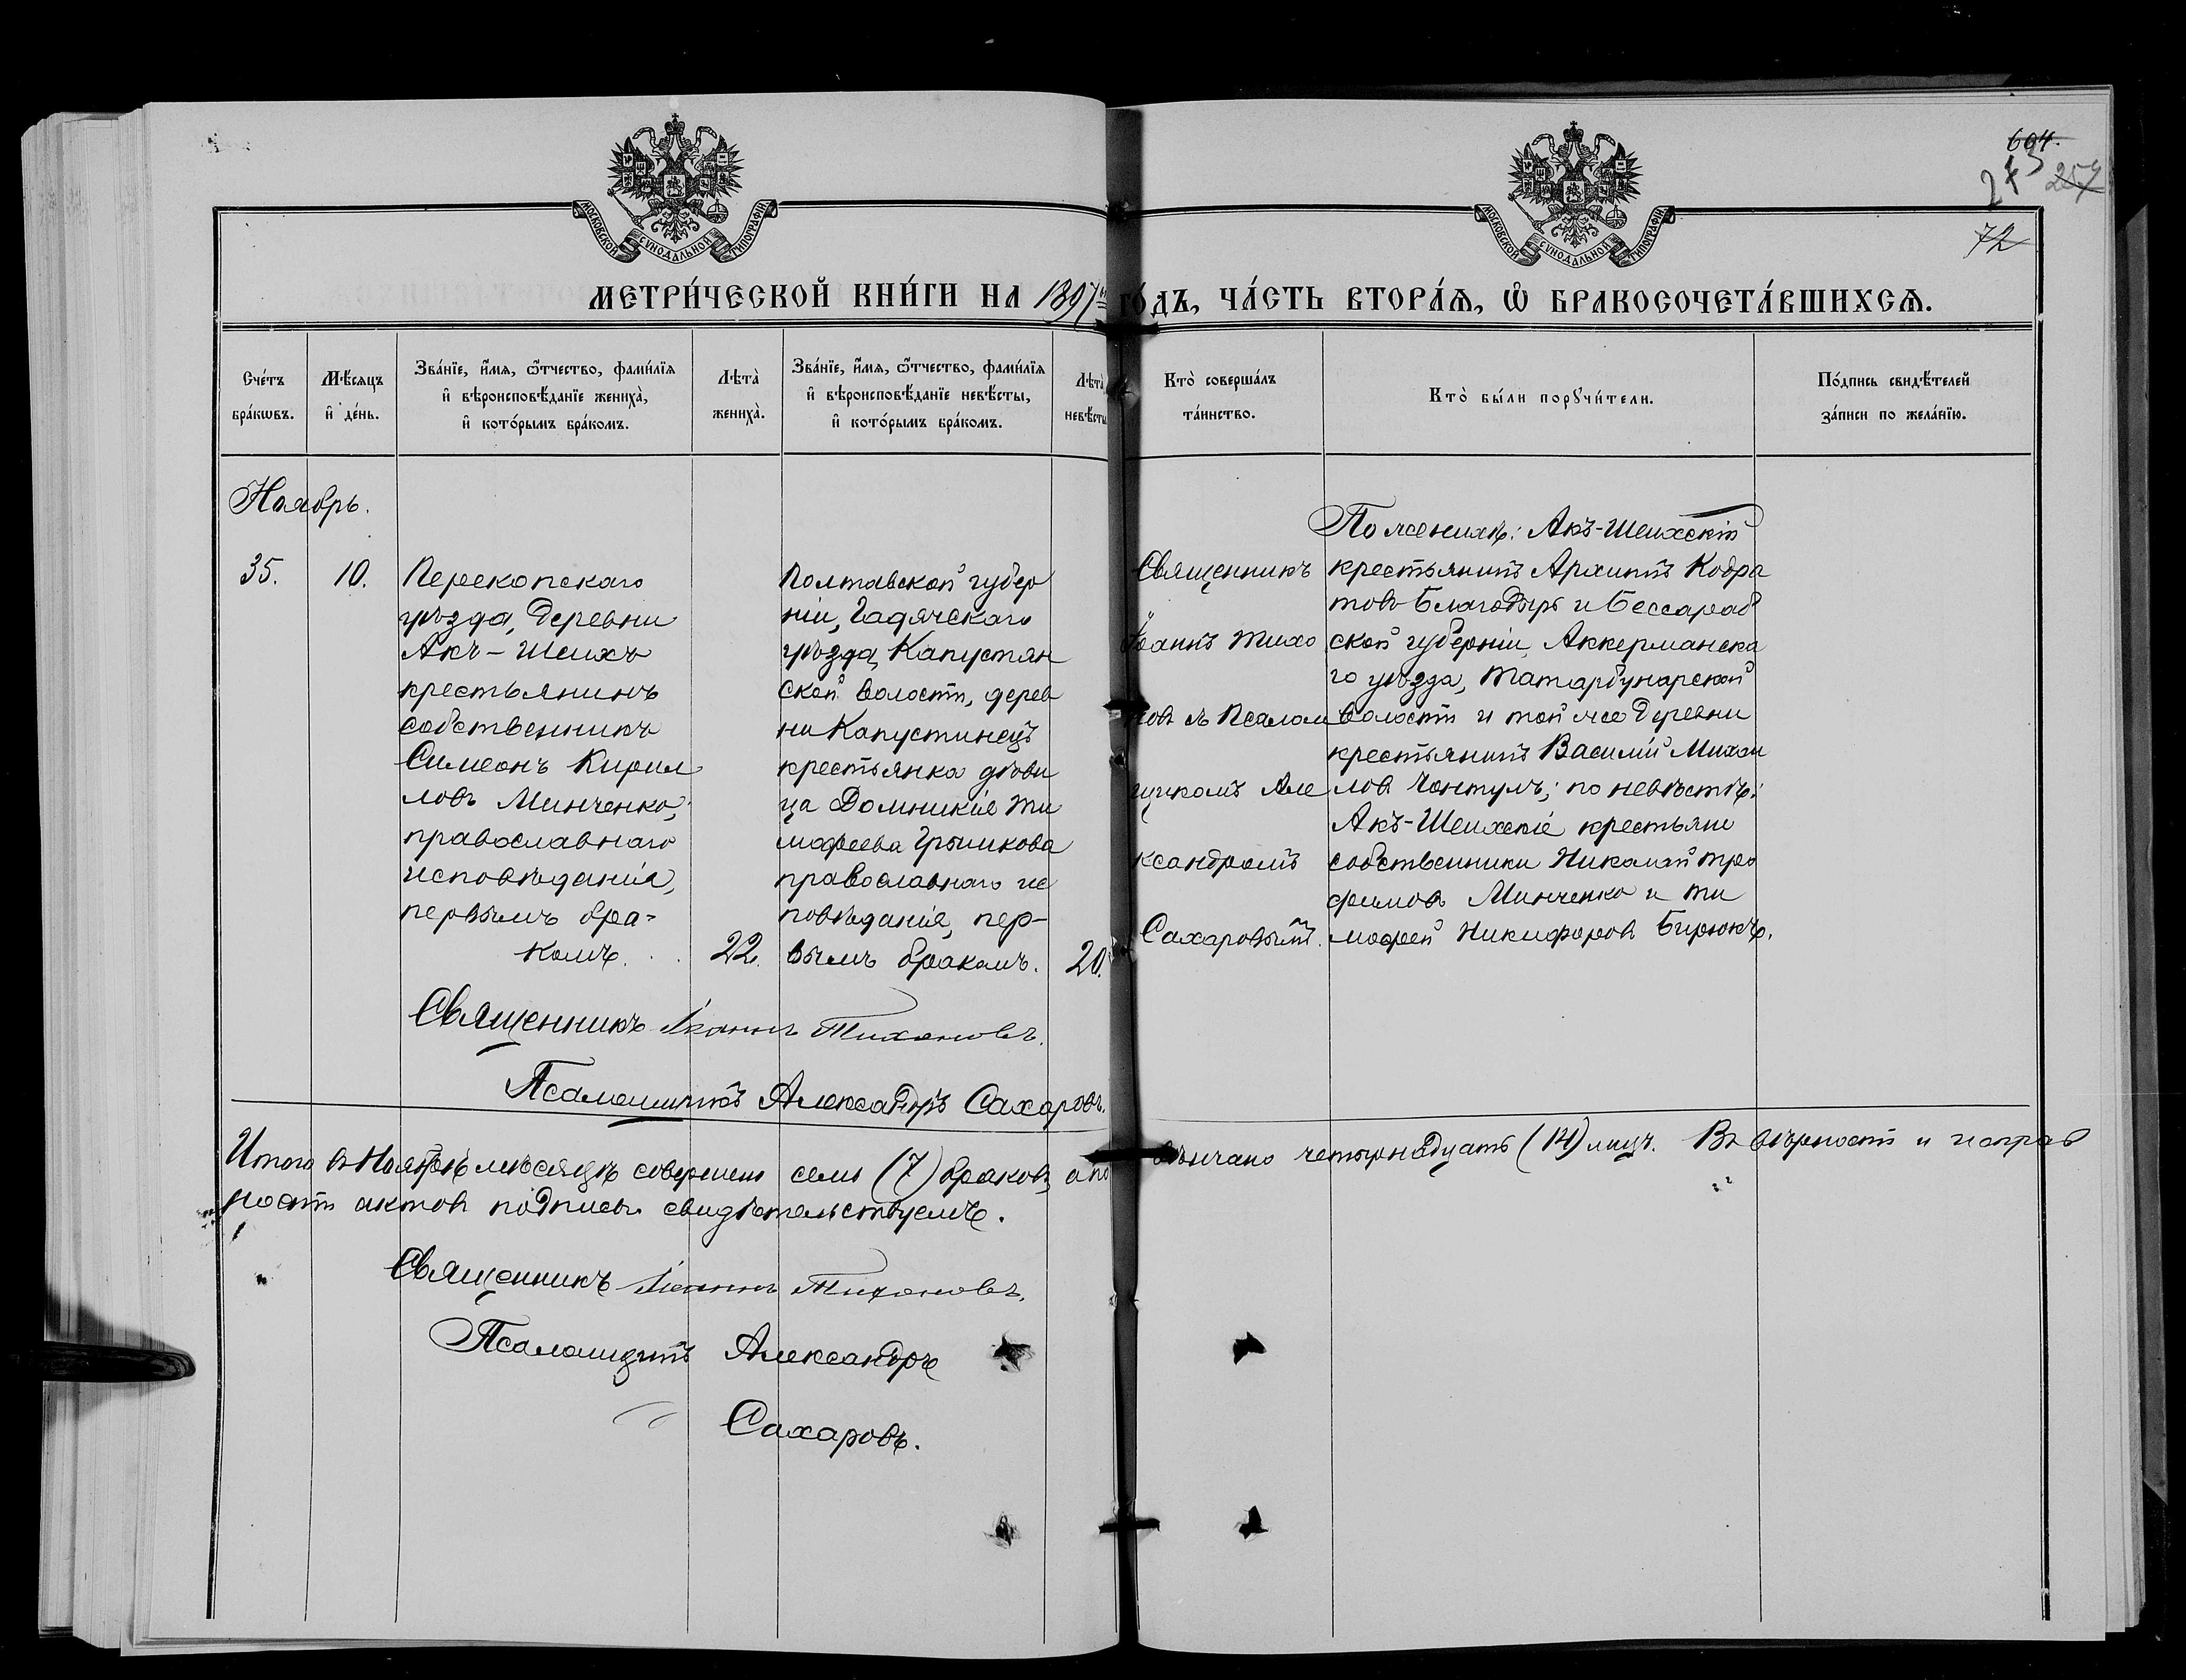 604.
273 257
72
МОСКОВСКОЙ СУНОДАЛЬНОЙ ТИПОГРАФІИ
МОСКОВСКОЙ СУНОДАЛЬНОЙ ТИПОГРАФІИ
МЕТРИ́ЧЕСКОЙ КНИ́ГИ НА 1897й ГО́ДЪ, ЧА́СТЬ ВТОРА́Я, Ѡ҆ БРАКОСОЧЕТА́ВШИХСЯ.
Сче́тъ
бра́кѡвъ.
Мѣ́сяцъ
и҆ де́нь.
Зва́нїе, и҆́мя, ѻ҆́тчество, фами́лїя
и҆ вѣроисповѣ́данїе жениха̀,
и҆ кото́рымъ бра́комъ.
Лѣта̀
жениха̀.
Зва́нїе, и҆́мя, ѻ҆́тчество, фами́лїя
и҆ вѣроисповѣ́данїе невѣ́сты,
и҆ кото́рымъ бра́комъ.
Лѣта̀
невѣ́сты
Кто̀ соверша́лъ
та́инство.
Кто̀ бы́ли порꙋчи́тели.
По́дпись свидѣ́телей
за́писи по жела́нїю.
Ноябрь.
35.
10.
Перекопскаго
уѣзда, деревни
Акъ-Шеихъ
крестьянинъ
собственникъ
Симеонъ Кирил
ловъ Минченко,
православнаго
исповѣданія,
первымъ бра-
комъ.
22.
Полтавской губер
ніи, Гадячскаго
уѣзда, Капустян
ской волости, дерев
ни Капустинецъ
крестьянка дѣви
ца Домникія Ти
мофеева Грымкова
православнаго ис
повѣданія, пер-
вымъ бракомъ.
20.
Священникъ
Іоаннъ Тихо
новъ съ Псалом
щикомъ Але
ксандромъ
Сахаровымъ.
По женихѣ: Акъ-Шеихскій
крестьянинъ Архипъ Кодра
товъ Благодыръ и Бессараб
ской губерніи, Аккерманска
го уѣзда, Татарбунарской
волости и той же деревни
крестьянинъ Василій Михаи
ловъ Чонтулъ; по невѣстѣ:
Акъ-Шеихскіе крестьяне
собственники Николай Тро
фимовъ Минченко и Ти
мофей Никифоровъ Бирюкъ.
Священникъ Іоаннъ Тихоновъ.
Псаломщикъ Александръ Сахаровъ.
Итого въ Ноябрѣ мѣсяцѣ совершено семь (7) браковъ, а по вѣнчано четырнадцать (14) лицъ. Въ вѣрности и исправ
ности актовъ подписью свидѣтельствуемъ.
Священникъ Іоаннъ Тихоновъ.
Псаломщикъ Александръ
Сахаровъ.